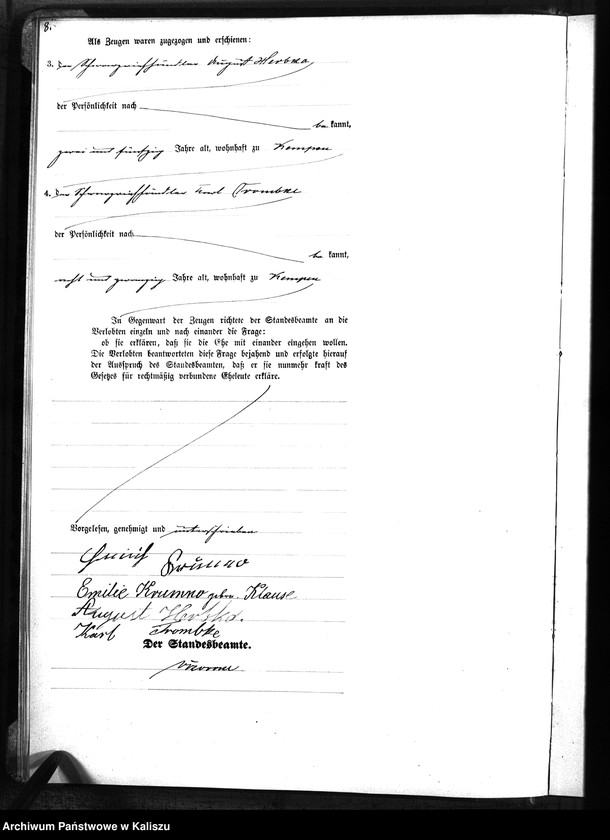 8.
Als Zeugen waren zugezogen und erschienen:
3. der Schwarzviehhändler August Herbka,
der Persönlichkeit nach
bekannt,
zwei und fünfzig Jahre alt, wohnhaft zu Kempen
4. der Schwarzviehhändler Karl Trombke
der Persönlichkeit nach
bekannt,
acht und zwanzig Jahre alt, wohnhaft zu Kempen
In Gegenwart der Zeugen richtete der Standesbeamte an die
Verlobten einzeln und nach einander die Frage:
ob sie erklären, daß sie die Ehe mit einander eingehen wollen.
Die Verlobten beantworteten diese Frage bejahend und erfolgte hierauf
der Ausspruch des Standesbeamten, daß er sie nunmehr kraft des
Gesetzes für rechtmäßig verbundene Eheleute erkläre.
Vorgelesen, genehmigt und unterschrieben
Krumno
Emilie Krumno geborn. Klause
August Herbka.
Karl Trombke
Der Standesbeamte.
Archiwum Państwowe w Kaliszu